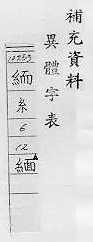 補充資料
異體字表
糸
6
12
緬